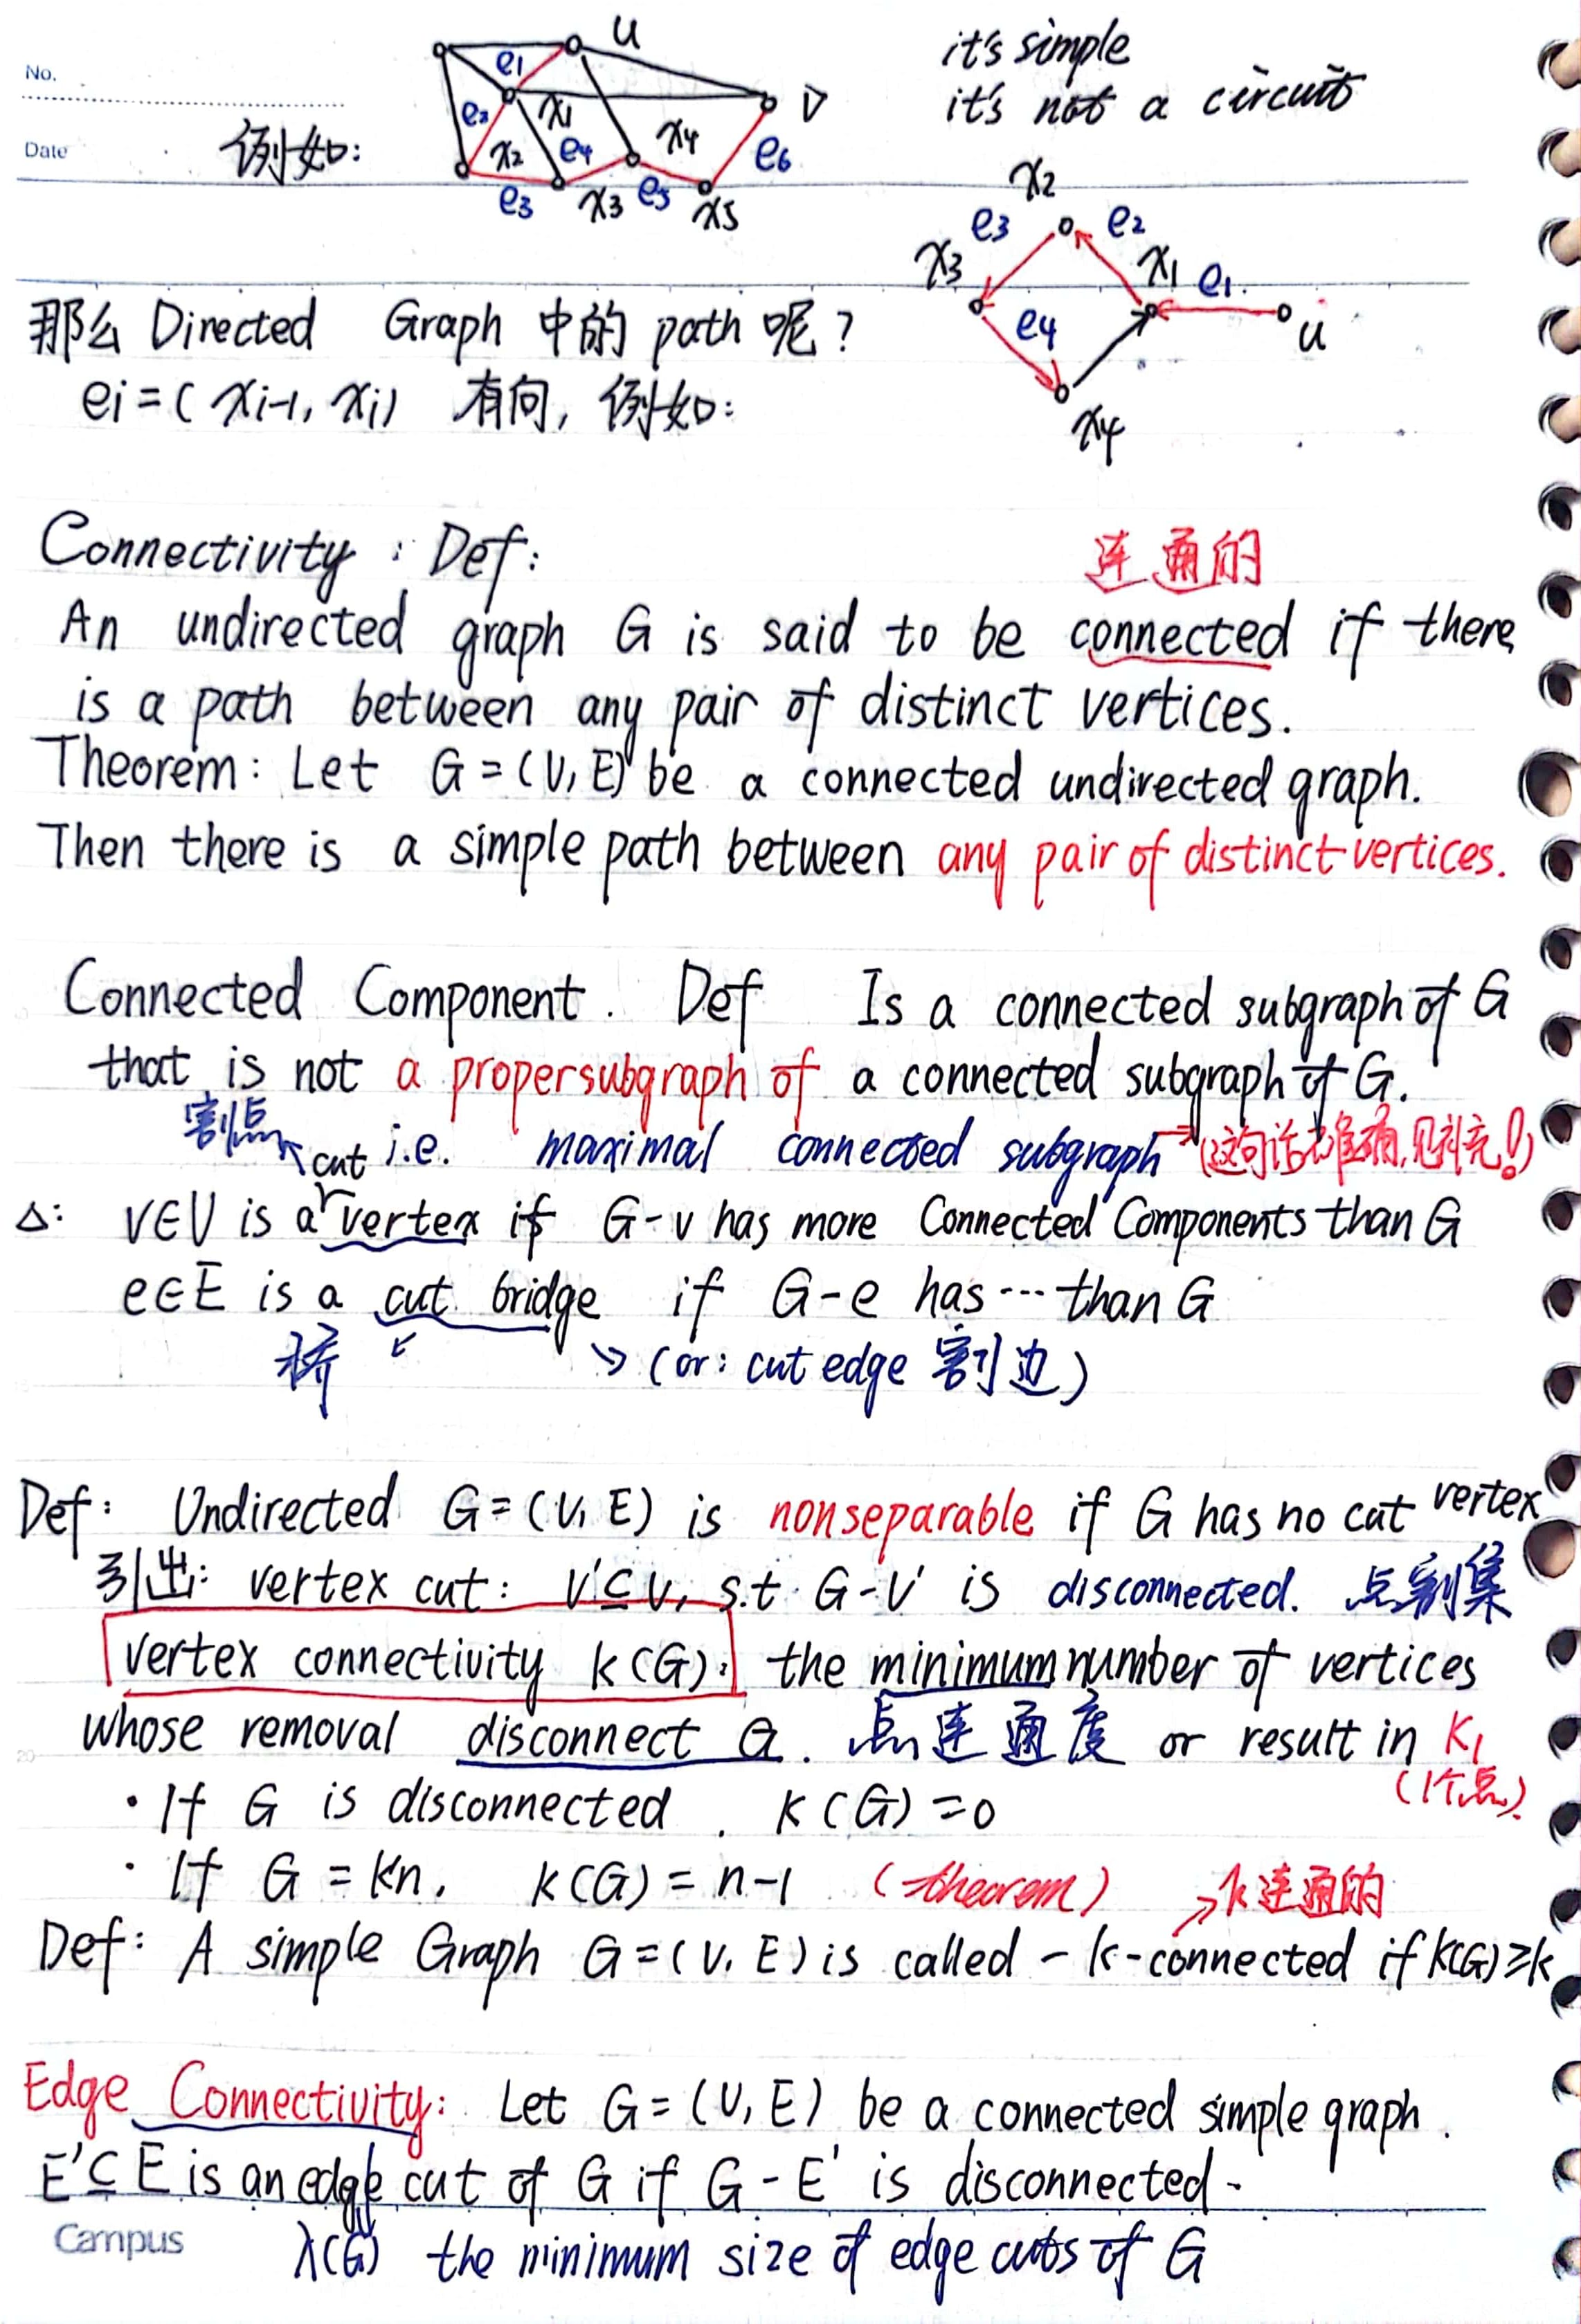 No.
Date
例如:
u
e1
e2
x1
x2
e4
x4
v
e6
e3
x3
e5
x5
it's simple
it's not a circuit
x2
e3
e2
x3
x1
e1
e4
u
x4
那么 Directed Graph 中的 path 呢?
ei = (xi-1, xi) 有向, 例如:
Connectivity: Def: 连通的
An undirected graph G is said to be connected if there
is a path between any pair of distinct vertices.
Theorem: Let G = (V, E) be a connected undirected graph.
Then there is a simple path between any pair of distinct vertices.
Connected Component. Def Is a connected subgraph of G
that is not a proper subgraph of a connected subgraph of G.
割点 cut i.e. maximal connected subgraph → (这句话才准确,见补充!)
△: v∈V is a vertex if G-v has more Connected Components than G
e∈E is a cut bridge if G-e has ... than G
桥 (or: cut edge 割边)
Def: Undirected G = (V, E) is nonseparable if G has no cut vertex
引出: vertex cut: V'⊆V, s.t. G-V' is disconnected. 点割集
vertex connectivity k(G): the minimum number of vertices
whose removal disconnect G. 点连通度 or result in K1
(1个点)
· If G is disconnected. k(G)=0
· If G = Kn, k(G) = n-1 (theorem) k连通的
Def: A simple Graph G = (V, E) is called - k-connected if k(G)≥k
Edge Connectivity: Let G = (V, E) be a connected simple graph.
E'⊆E is an edge cut of G if G-E' is disconnected.
Campus λ(G) the minimum size of edge cuts of G